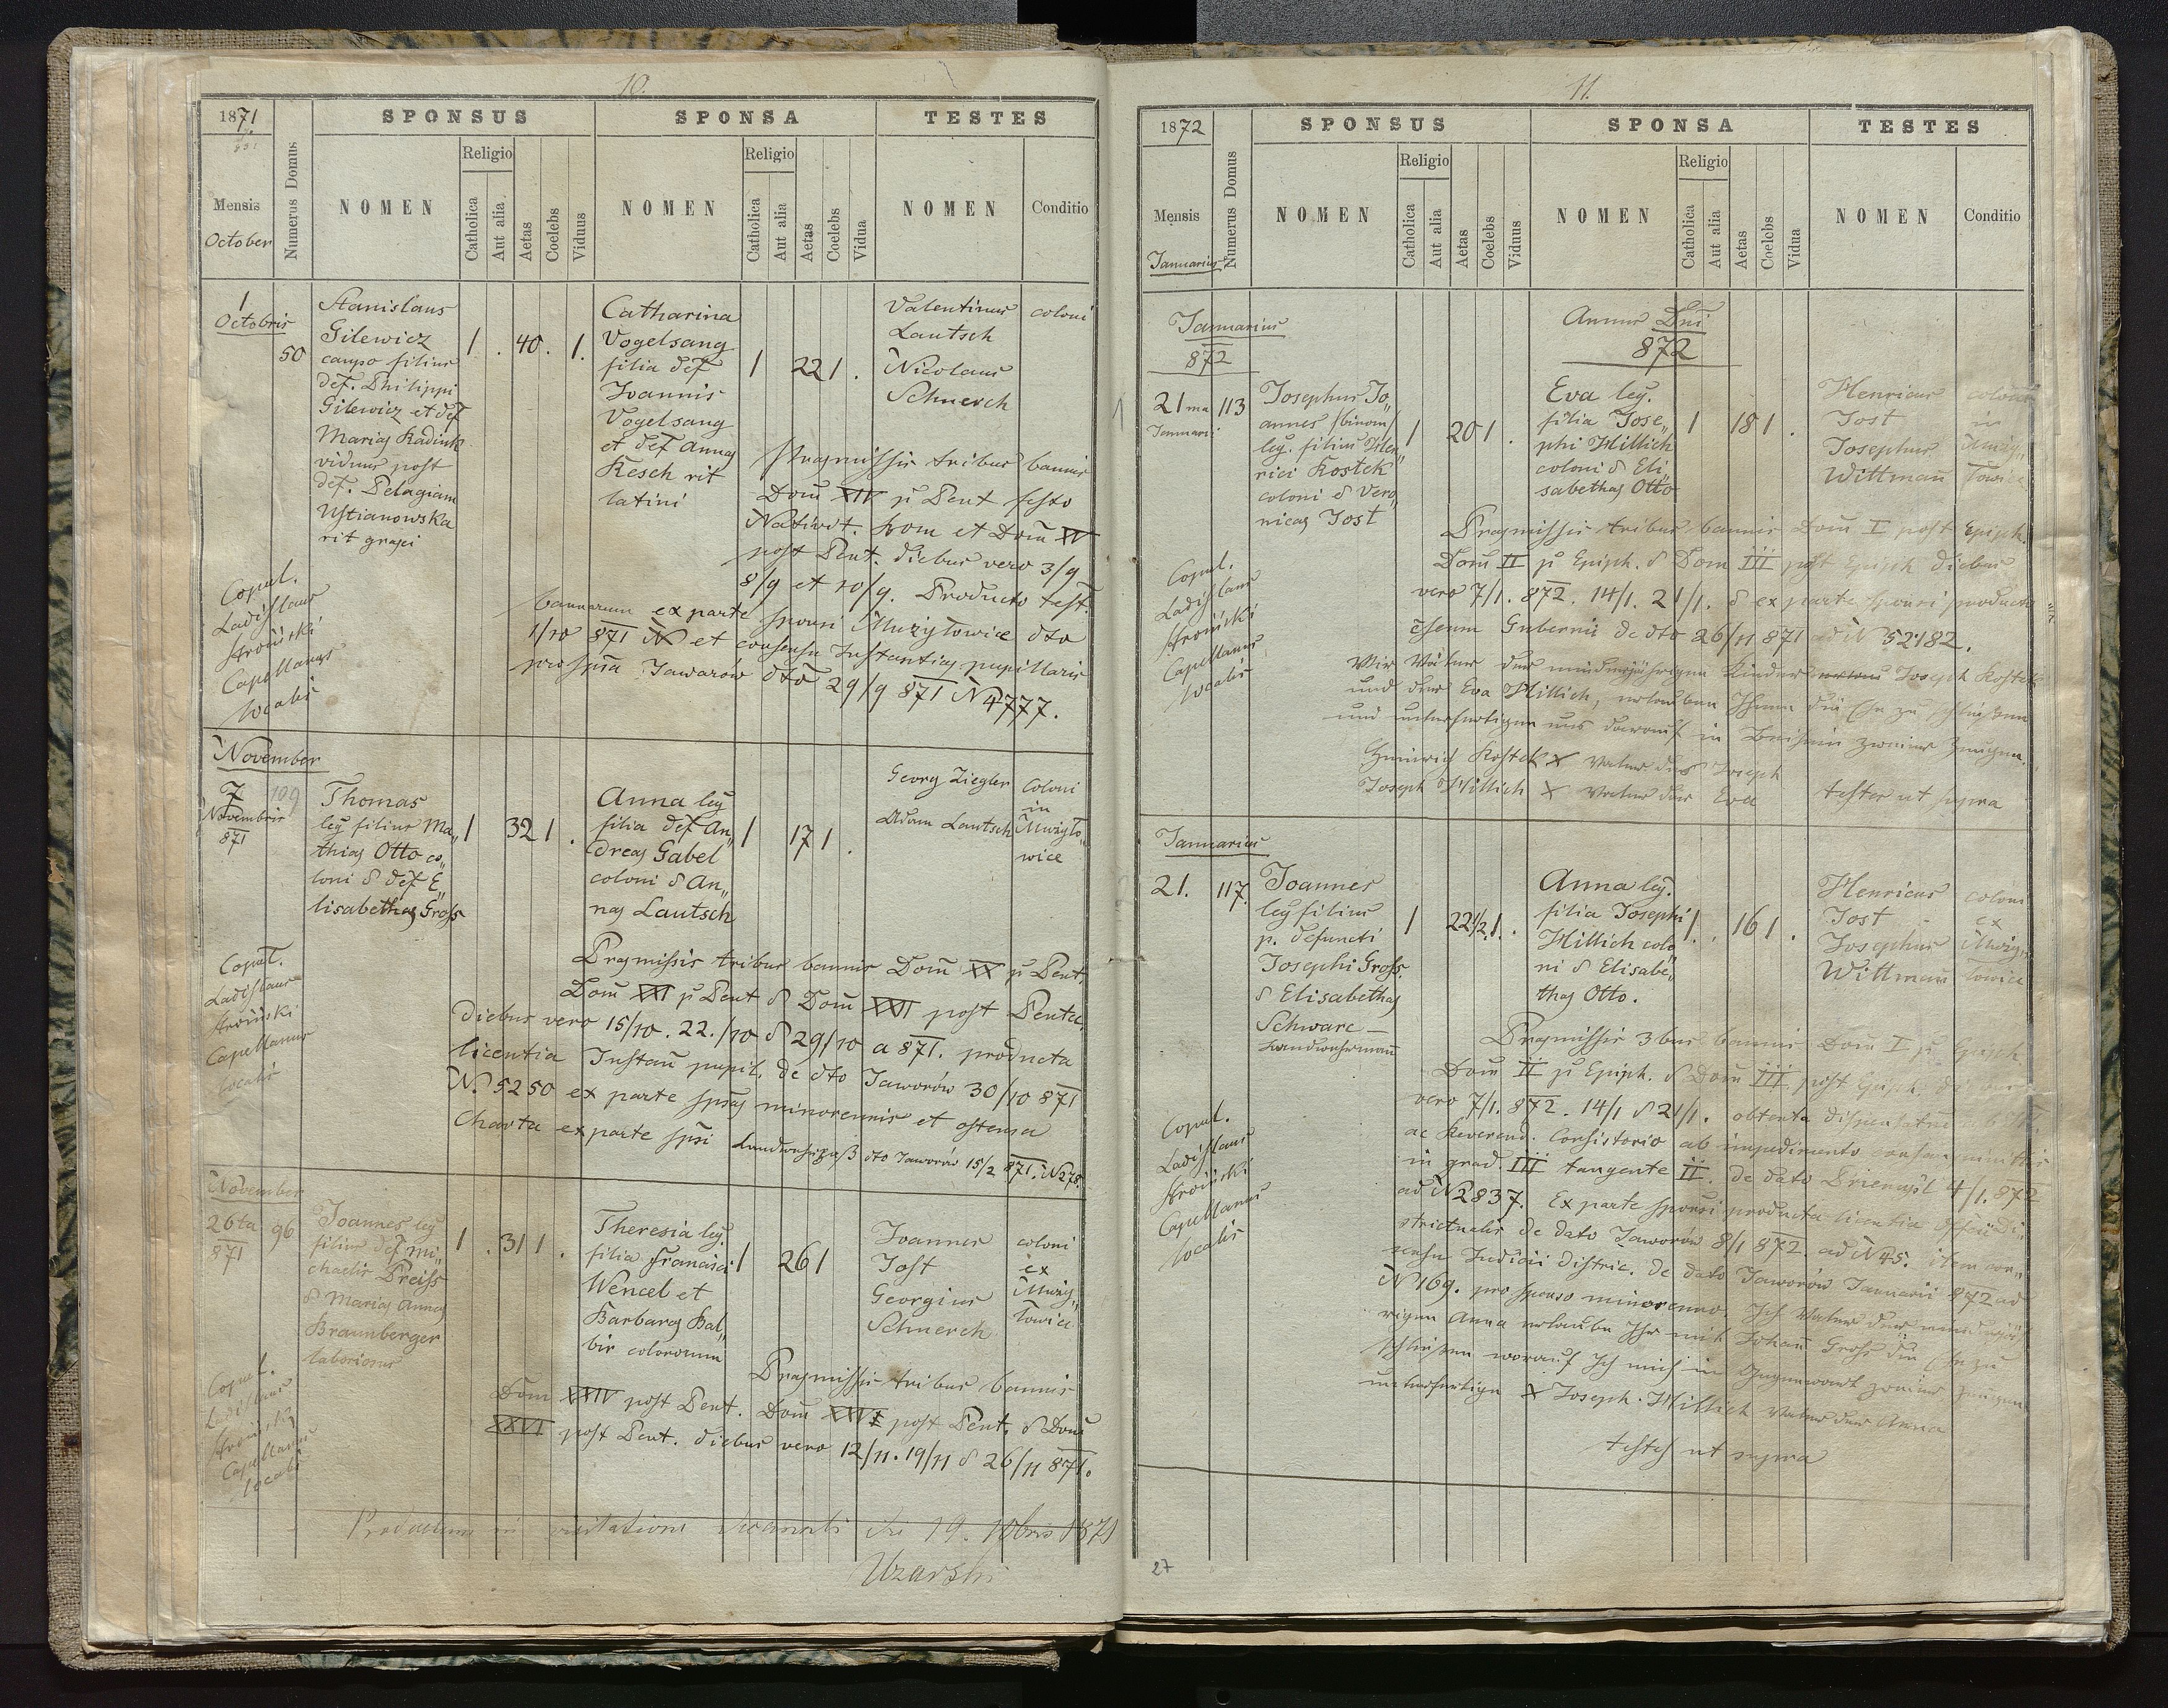 10.
1871
SPONSUS
SPONSA
TESTES
Mensis
October
Numerus Domus
NOMEN
Religio
Catholica
Aut alia
Aetas
Coelebs
Viduus
NOMEN
Religio
Catholica
Aut alia
Aetas
Coelebs
Vidua
NOMEN
Conditio
1
Octobris
50
Stanislaus
Gilewicz
caupo filius
def. Philippi
Gilewicz et def
Mariae Radiuk
viduus post
def. Pelagiam
Ustianowska
rit graeci
1 . 40 . 1.
Catharina
Vogelsang
filia def
Joannis
Vogelsang
et def Annae
Kesch rit
latini
1 22 1 .
Valentinus
Lautsch
Nicolaus
Schnerch
coloni
Praemissis tribus bannis
Dom̄ XIV p Pent festo
Nativit. hom et Dom̄ XV
post Pent. diebus vero 3/9
8/9 et 10/9. Producto test.
bannorum ex parte sponsi Mużyłowice dto
1/10 871 N et consensu Instantiae pupillaris
pro spsa Jaworów dto 29/9 871 N 4777.
Copul.
Ladislaus
Stroiński
Capellanus
localis
November
7
Novembris
871
109
Thomas
leg filius Ma„
thiae Otto co„
loni & def E„
lisabethae Gross
1 32 1 .
Anna leg
filia def An„
dreae Gabel
coloni & An„
nae Lautsch
1 17 1 .
Georg Ziegler
Adam Lautsch
Coloni
in
Mużyło„
wice
Copul.
Ladislaus
Stroiński
Capellanus
localis
Praemissis tribus bannis Dom̄ XX p Pent,
Dom̄ XXI p Pent & Dom̄ XXII post Pentec.
diebus vero 15/10. 22./10 & 29/10 a 871. producta
licentia Instan̄ pupil. de dto Jaworów 30/10 871
N. 5250 ex parte spsae minorennis et ostensa
Charta ex parte spsi Landwehrpaß dto Jaworów 15/2 871. N 278.
November
26ta
871
96
Joannes leg
filius def Mi„
chaelis Preiss
& Mariae Annae
Braumberger
laboriosus
1 . 31 1 .
Theresia leg.
filia Francisci
Wencel et
Barbarae Bal„
bir colonorum
1 26 1
Joannes
Jost
Georgius
Schnerch
coloni
ex
Muży„
łowice
Copul.
Ladislaus
Stroiński
Capellanus
localis
Praemissis tribus bannis
Dom XXIV post Pent. Dom̄ XXV post Pent, & Dom̄
XXVI post Pent. diebus vero 12/11. 19/11 & 26/11 871.
Productum in visitatione decanali die 19. 10bris 1871
Uzarski
11.
1872
SPONSUS
SPONSA
TESTES
Mensis
Januarius
Numerus Domus
NOMEN
Religio
Catholica
Aut alia
Aetas
Coelebs
Viduus
NOMEN
Religio
Catholica
Aut alia
Aetas
Coelebs
Vidua
NOMEN
Conditio
Januarius
872
Annus Dni
872
21ma
Januarii
113
Josephus Jo„
annes /binom/
leg. filius Hen„
rici Kostek
coloni & Vero„
nicae Jost
1 20 1 .
Eva leg.
filia Jose„
phi Hillich
coloni & Eli„
sabethae Otto
1 18 1 .
Henricus
Jost
Josephus
Wittman̄
coloni
in
Muży„
łowice
Praemissis tribus bannis Dom̄ I post Epiph.
Dom̄ II p Epiph. & Dom III post Epiph diebus
vero 7/1. 872. 14/1. 21/1. & ex parte sponsi producto
censum Gubernii de dto 26/11 871 ad N 52182.
Copul.
Ladislaus
Stroiński
Capellanus
localis
Wir Väter der minderjährigen Kinder Joseph Kostek
und der Eva Hillich, erlauben Ihnen die Ehe zu schließen
und unterfertigen uns darauf in Beisein zweier Zeugen.
Heinrich Kostek X Vater des Joseph
Joseph Hillich X Vater der Eva testes ut supra
Januarius
21.
117.
Joannes
leg filius
p. defuncti
Josephi Gross.
& Elisabethae
Schwarc —
Landwehrman̄
1 22½ 1. .
Anna leg.
filia Josephi
Hillich colo„
ni & Elisabe„
thae Otto.
1 . . 16 1 .
Henricus
Jost
Josephus
Wittman̄
coloni
ex
Muży„
łowice
Praemissis 3bus bannis Dom̄ I p Epiph
Dom̄ II p Epiph. & Dom̄ III post Epiph. diebus
vero 7/1. 872. 14/1 & 21/1. obtenta dispensatione
ac Reverend. Consistorio ab impedimento consanguinitis
in grad. III tangente II. de dato Premysl 4/1. 872
ad N 2837. Ex parte sponsi producta licentia Officii di„
strictualis de dato Jaworów 8/1 872. ad N 45. item con„
sensu Judicii distric. de dato Jaworów Januarii 872 ad
N 169. pro sponso minorenno. Ich Vater der minderjäh
rigen Anna erlaube Ihr mit Johan̄ Gross die Ehe zu
schließen worauf Ich mich in Gegenwart zweier Zeugen
unterfertige X Joseph Hillich Vater der Anna
testes ut supra
Copul.
Ladislaus
Stroiński
Capellanus
localis
27